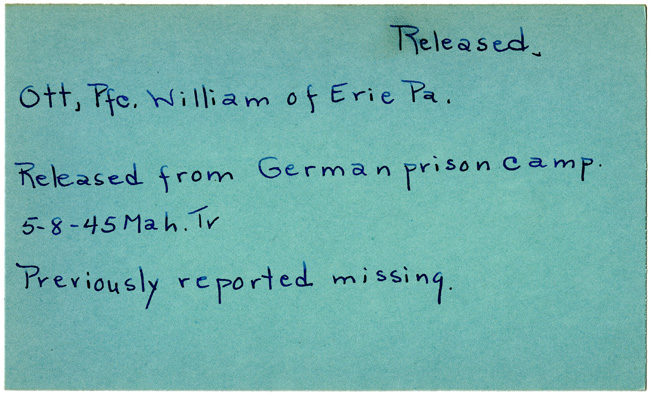 Released.
Ott, Pfc. William of Erie Pa.
Released from German prison camp.
5-8-45 Mah. Tr
Previously reported missing.